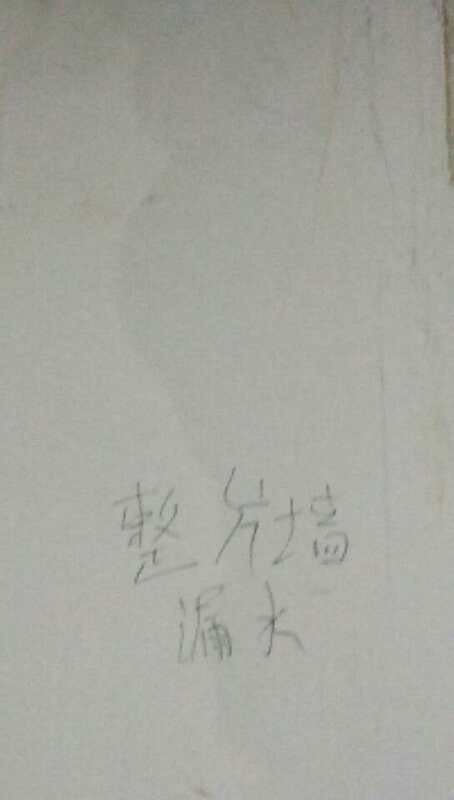 整片墙
漏水